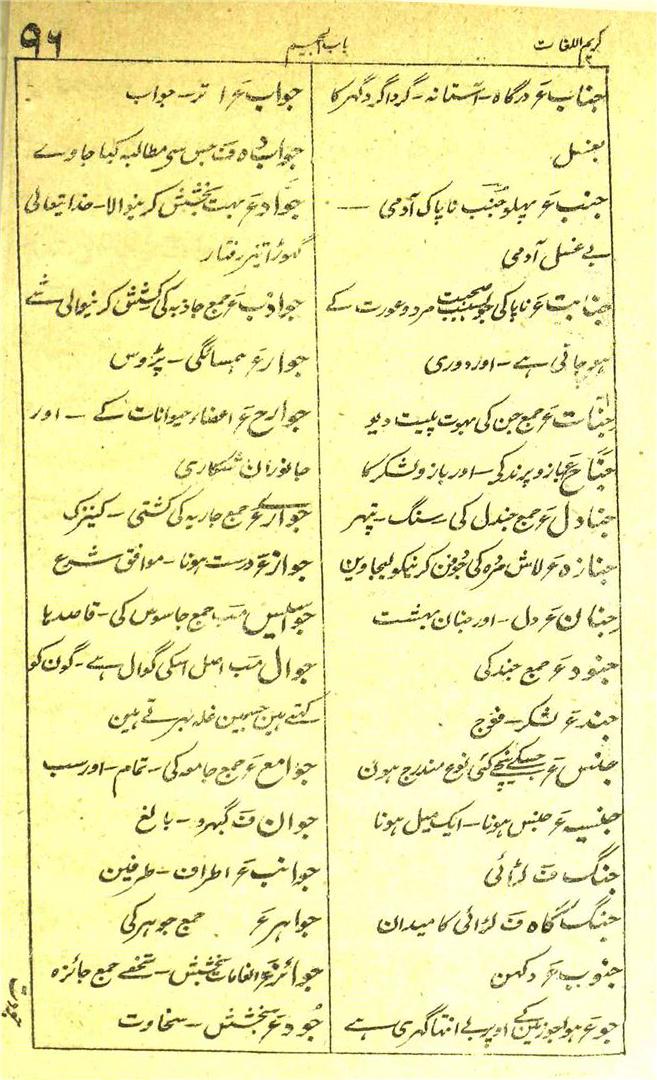 کریم اللغات
باب الجیم
۹۶
جناب ع درگاہ - آستانہ - گرداگرد گھر کا
بغسل
جنب ع پہلو جنب ناپاک آدمی —
بے غسل آدمی
جنابت ع ناپاکی جو بسبب صحبت مرد و عورت کے
ہو جاتی ہے - اور دوری
جنات ع جمع جن کی بہوت پلیت دیو
جناح ع بازو پرند کی - اور بازو لشکر کا
جنادل ع جمع جندل کی سنگ - پتہر
جنازہ ع لاش مردہ کی جو دفن کرنیکو لیجاوین
جنان ع دل - اور جنان بہشت
جنود ع جمع جند کی
جند ع لشکر - فوج
جنس ع جسکے نیچے کئی نوع مندرج ہون
جنسیہ ع جنس ہونا - ایک میل ہونا
جنگ ف لڑائی
جنگ گاہ ف لڑائی کا میدان
جنوب ع دکہن
جو ع ہوا جو زمین کے اوپر بے انتہا گہری ہے
جواب ع اتر - جواب
جواب دہ ف جس سی مطالبہ کیا جاوے
جواد ع بہت بخشش کرنیوالا - خدا تعالی
گہوڑا تیز رفتار
جواذب ع جمع جاذبہ کی کشش کرنیوالی شے
جوار ع ہمسائگی - پڑوس
جوارح ع اعضاء حیوانات کے - اور
جانوران شکاری
جوارے ع جمع جاریہ کی کشتی - کنیزک
جواز ع درست ہونا - موافق شرع
جواسیس مب جمع جاسوس کی - قاصدہا
جوال مب اصل اسکی گوال ہے - گون کو
کہتے ہین جسمین غلہ بہرتے ہین
جوامع ع جمع جامعہ کی - تمام - اور سب
جوان ف گبہرو - بالغ
جوانب ع اطراف - طرفین
جواہر ع جمع جوہر کی
جوائز ع انعامات بخشش - تحفے جمع جائزہ
جُود ع بخشش - سخاوت